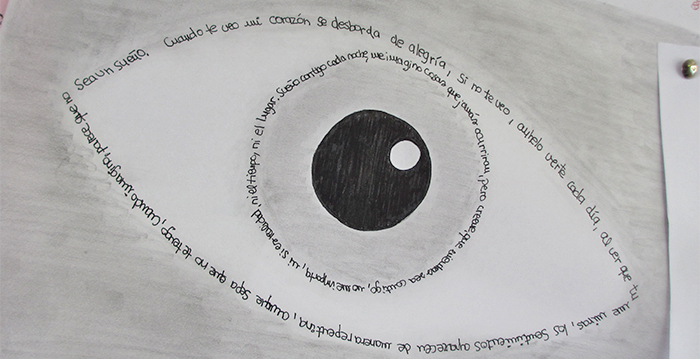 Cuando te veo mi corazón se desborda de alegría, si no te veo, anhelo verte cada día, al ver que tu me miras, los sentimientos aparecen de manera repentina, aunque sepa que no te tengo, cuando imagino, parece que no sea un sueño.
Sueño contigo cada noche, me imagino cosas que jamás ocurriran, pero creeme, que mientras sea contigo, no me importa, ni si es realidad, ni el tiempo, ni el lugar.